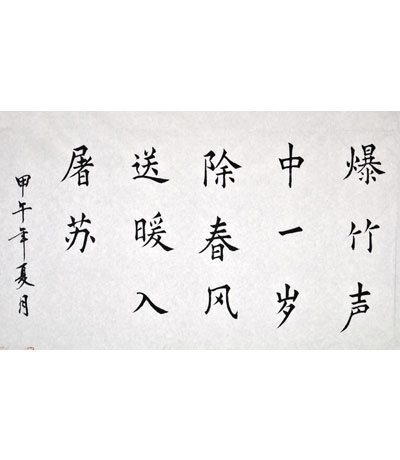 爆竹声
中一岁
除春风
送暖入
屠苏
甲午年夏月